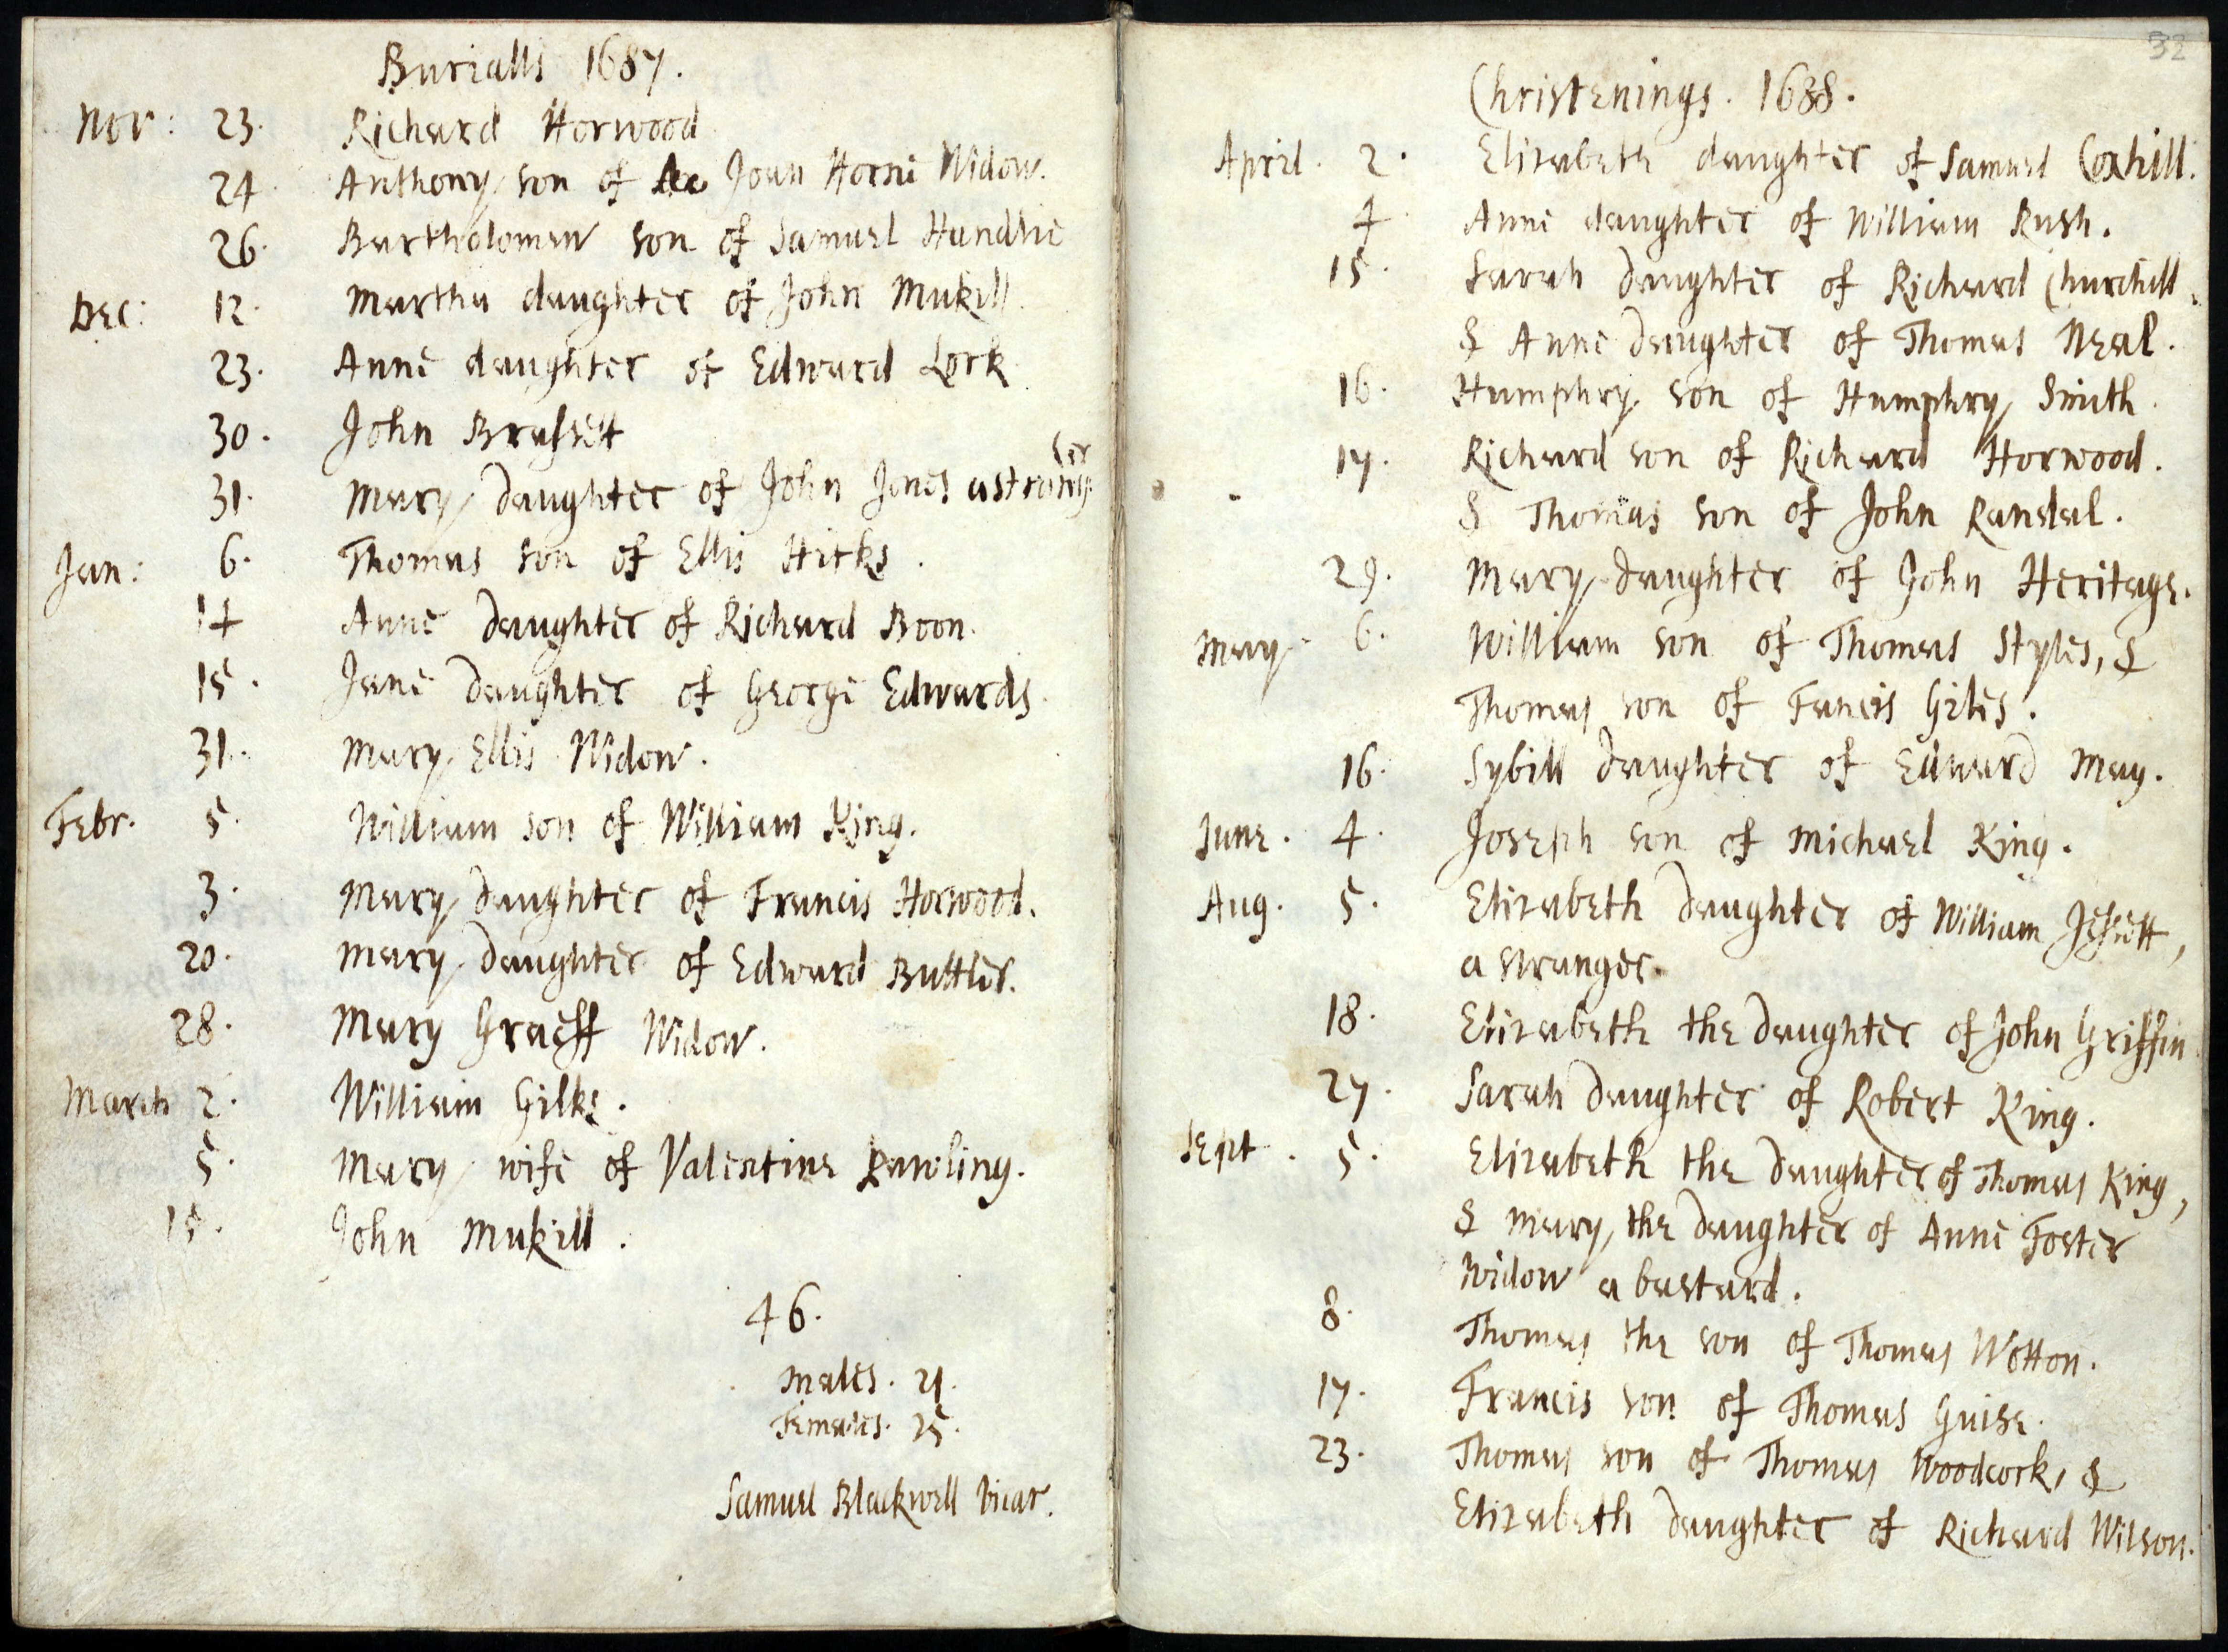 Burialls 1687.
Nov: 23. Richard Horwood
24 Anthony son of Joan Horne Widow.
26. Bartholomew son of Samuel
Dec: 12. Martha daughter of John Mukill
23. Anne daughter of Edward Lock
30. John Brassett
31. Mary daughter of John Jones a stranger
Jan: 6. Thomas son of Ellis Hicks.
14 Anne Daughter of Richard Boon.
15. Jane Daughter of George Edwards.
31. Mary Ellis Widow.
Febr. 5. William son of William King.
3. Mary Daughter of Francis Horwood.
20. Mary Daughter of Edward Buttler.
28. Mary Widow.
March 2. William Gilks.
5. Mary wife of Valentine Rawling.
15. John Mukill.
46.
Males. 21.
Females. 25.
Samuel Blackwell Vicar.
32
Christenings. 1688.
April. 2. Elizabeth daughter of Samuel Coxhill.
4. Anne daughter of William Rush.
15. Sarah Daughter of Richard Churchill,
& Anne Daughter of Thomas Neal.
16. Humphry son of Humphry Smith.
17. Richard son of Richard Horwood.
& Thomas son of John Randal.
29. Mary Daughter of John Heritage.
May 6. William son of Thomas Styles, &
Thomas son of Fancis Giles.
16. Sybill Daughter of Edward May.
June. 4. Joseph son of Michael King.
Aug. 5. Elizabeth Daughter of William Jessett,
a stranger.
18. Elizabeth the Daughter of John Griffin
27. Sarah Daughter of Robert King.
Sept. 5. Elizabeth the Daughter of Thomas King,
& Mary, the Daughter of Anne Foster
Widow a bastard.
8. Thomas the son of Thomas Wotton.
17. Francis son of Thomas Guise.
23. Thomas son of Thomas Woodcock, &
Elizabeth Daughter of Richard Wilson.